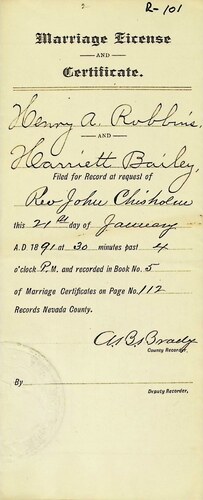 R-101
Marriage License
AND
Certificate.
Henry A. Robbins.
AND
Harriett Bailey,
Filed for Record at request of
Rev John Chisholm
this 21st day of January
A.D 1891 at 30 minutes past 4
o'clock P.M. and recorded in Book No. 5
of Marriage Certificates on Page No. 112
Records Nevada County.
County Recorder,
By
Deputy Recorder,